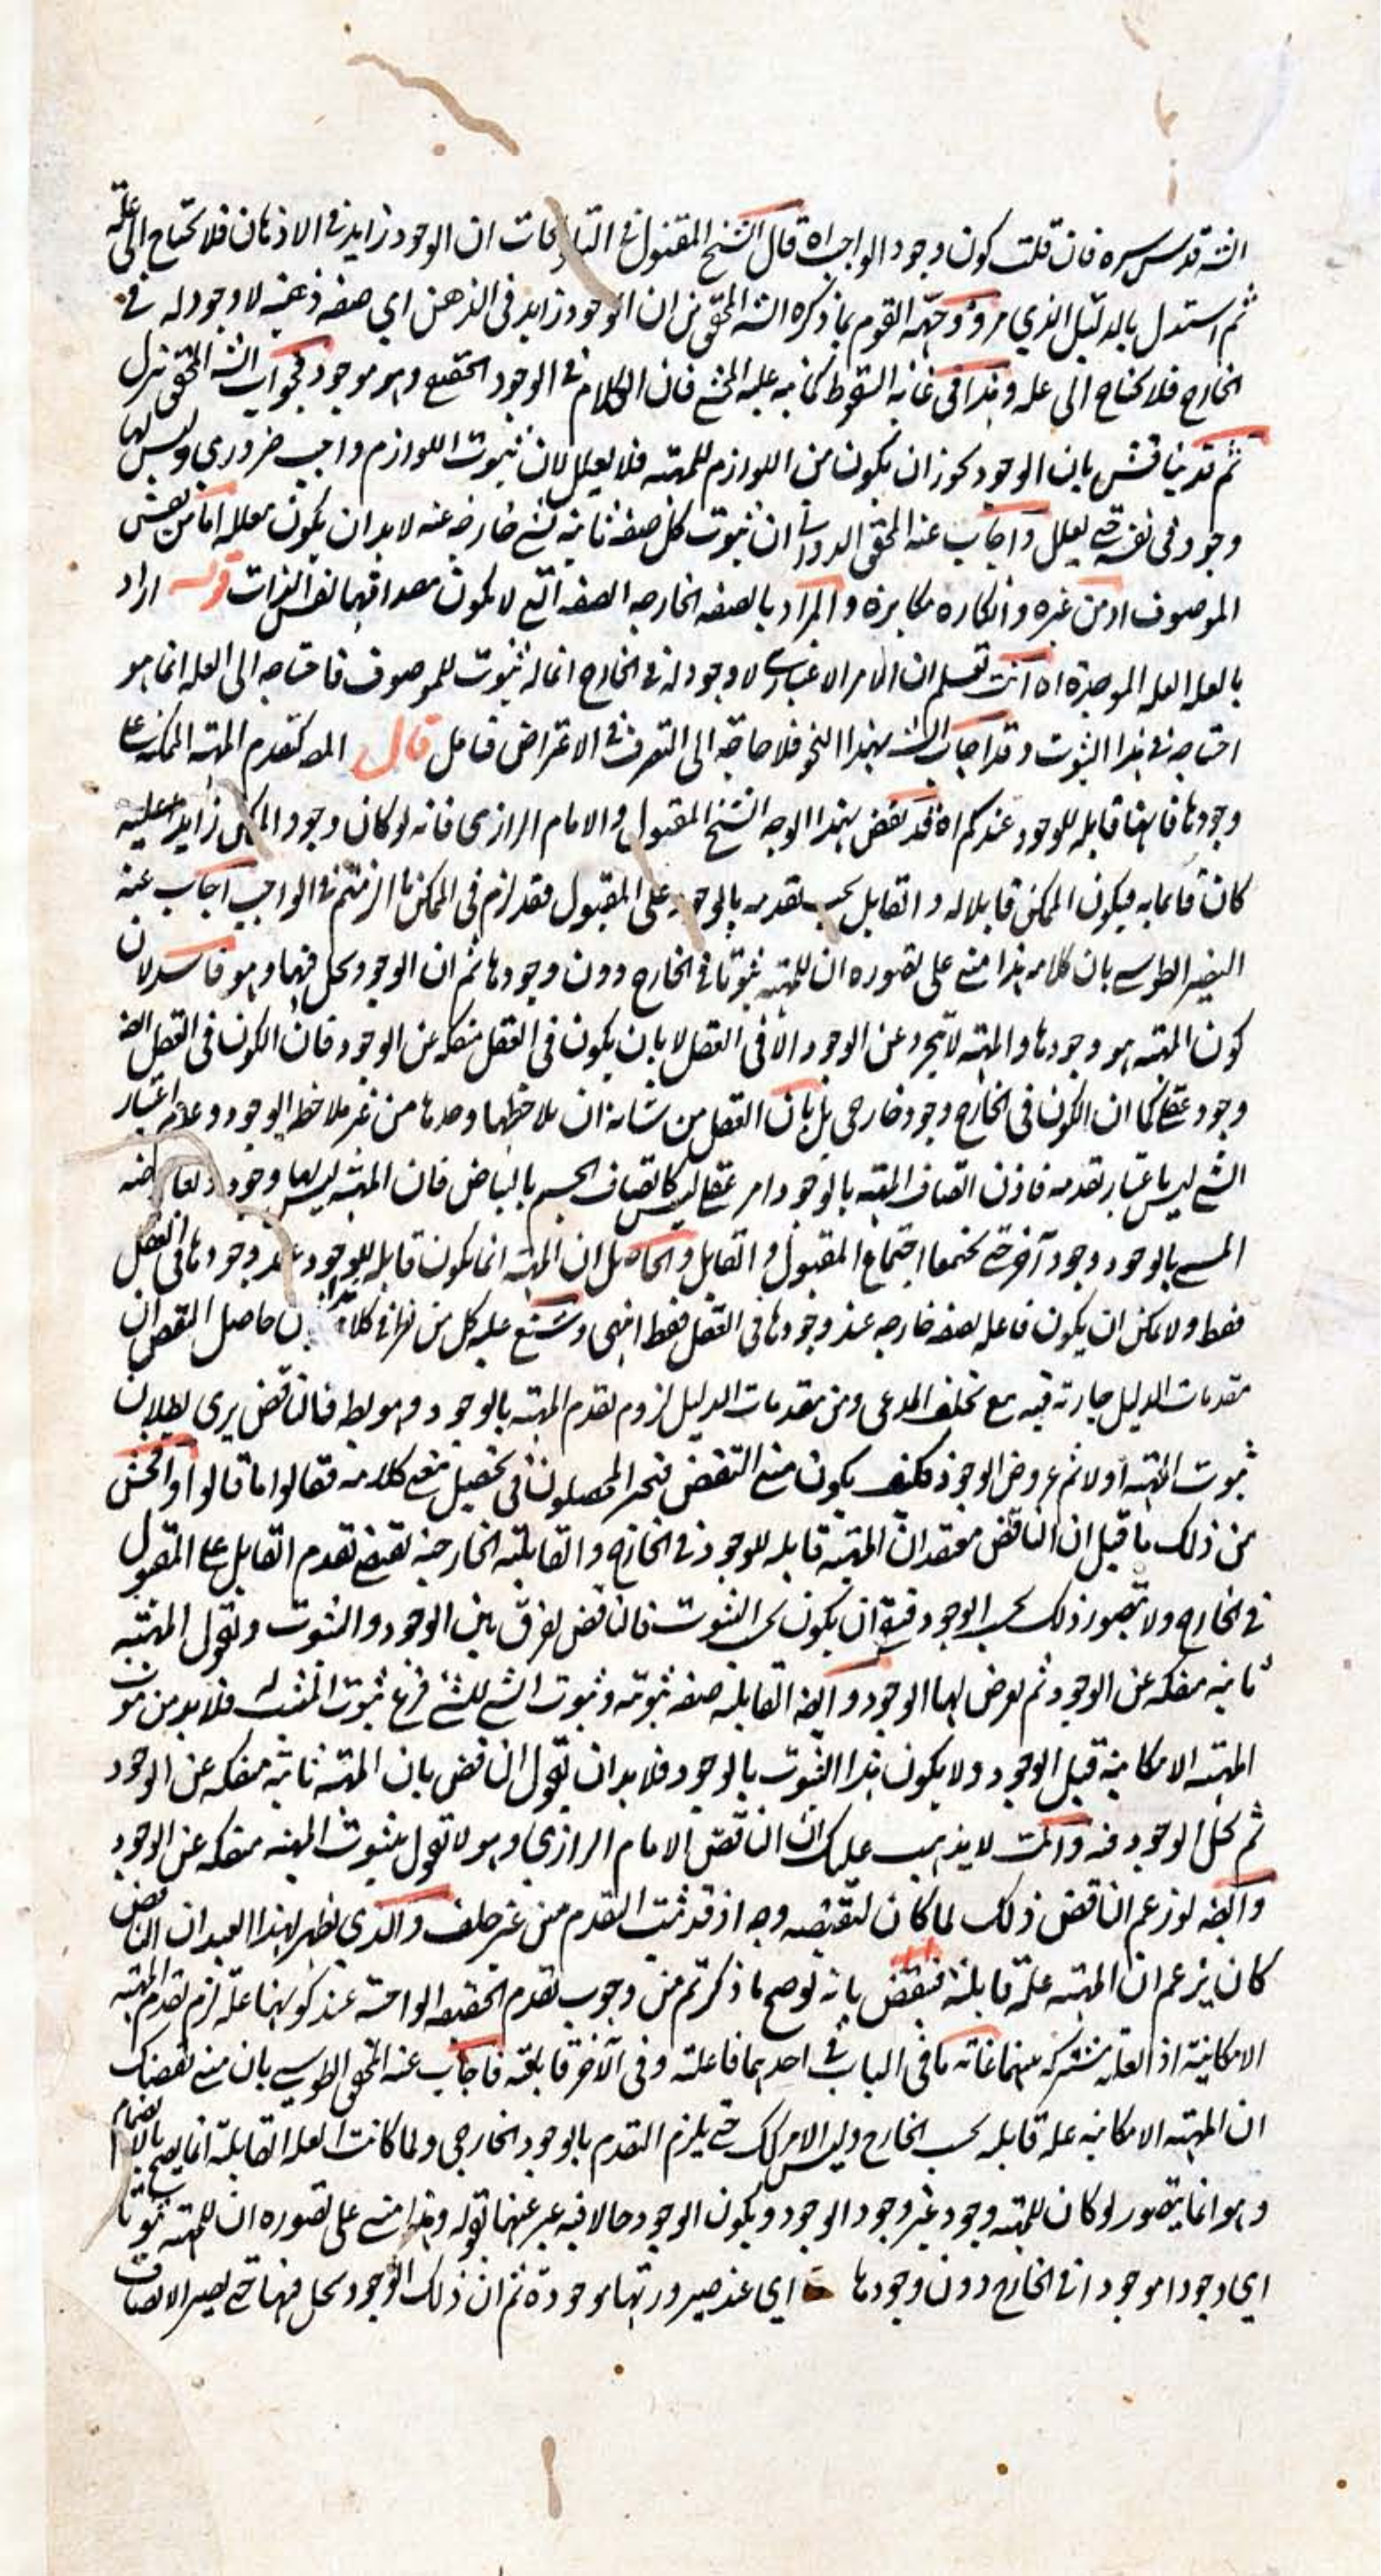 الشه قدس سره فان قلت كون وجود الواجب اه قال الشيخ المقتول في التلويحات ان الوجود زايد في الاذهان فلا يحتاج الى علة
ثم استدل بالدليل الذي مر ووجهه القوم بما ذكره الشه المحقق من ان الوجود زايد في الذهن اي صفه ذهنيه لا وجود له في
الخارج فلا يحتاج الى عله وهذا في غايه السقوط كما نبه عليه المحشى فان الكلام في الوجود الحقيقى وهو موجود فجواب الشه المحقق تنزل
ثم قد يناقش بان الوجود يجوز ان يكون من اللوازم للمهيه فلا يعلل لان ثبوت اللوازم واجب ضروري وليس لها
وجود في نفسه حتى يعلل واجاب عنه المحقق الدوانى ان ثبوت كل صفه ثابته لشى خارجه عنه لا بد ان يكون معلله اما من نفس
الموصوف او من غيره وانكاره مكابره والمراد بالصفه الخارجه الصفه التى لا يكون مصداقها نفس الذات قوله اراد
بالعله العله الموجده اه انت تعلم ان الامر الاعتبارى لا وجود له في الخارج انما له ثبوت للموصوف فاحتياجه الى العله انما هو
احتياجه في هذا الثبوت وقد اجاب الشه بهذا النحو فلا حاجة الى التصرف في الاعتراض فتامل قال المص كتقدم المهيه الممكنه على
وجودها فانها قابله للوجود عندكم اه قد نقض بهذا الوجه الشيخ المقتول والامام الرازى فانه لو كان وجود الممكن زايدا عليه
كان قايما به فيكون الممكن قابلا له والقابل يجب تقدمه بالوجود على المقبول فقد لزم في الممكن ما الزمتم في الواجب اجاب عنه
النصير الطوسى بان كلامه هذا مبنى على تصوره ان للمهيه ثبوتا في الخارج دون وجودها ثم ان الوجود يحل فيها وهو فاسد لان
كون المهيه هو وجودها والمهيه لا تجرد عن الوجود الا في العقل لا بان يكون في العقل منفكه عن الوجود فان الكون في العقل ايضه
وجود عقلى كما ان الكون في الخارج وجود خارجى بل بان العقل من شانه ان يلاحظها وحدها من غير ملاحظه الوجود وعدم اعتبار
الشى ليس باعتبار لعدمه فاذن اتصاف المهيه بالوجود امر عقلى ليس كاتصاف الجسم بالبياض فان المهيه ليس لها وجود ولعارضه
المسمى بالوجود وجود آخر حتى يجتمعا اجتماع المقبول والقابل والحاصل ان المهيه انما يكون قابله للوجود عند وجودها في العقل
فقط ولا يمكن ان يكون فاعله لصفه خارجه عند وجودها في العقل فقط انتهى وشنع عليه كل من نظر في كلامه هذا بان حاصل النقض ان
مقدمات الدليل جاريه فيه مع تخلف المدعى ومن مقدمات الدليل لزوم تقدم المهيه بالوجود وهو بط فالناقض يرى بطلان
ثبوت المهيه اولا ثم عروض الوجود فكيف يكون مبنى النقض فتحير المحصلون في تحصيل معنى كلامه فقالوا ما قالوا واحسن
من ذلك ما قيل ان الناقض معتقد ان المهيه قابله للوجود في الخارج والقابليه الخارجيه تقتضى تقدم القابل على المقبول
في الخارج ولا يتصور ذلك بحسب الوجود فبقى ان يكون بحسب الثبوت فالناقض يفرق بين الوجود والثبوت ويقول المهيه
ثابته منفكه عن الوجود ثم يعرض لها الوجود وايضه القابليه صفه ثبوتيه وثبوت الشى للشى فرع ثبوت المثبت له فلا بد من ثبوت
المهيه الامكانيه قبل الوجود ولا يكون هذا الثبوت بالوجود فلا بد ان يقول الناقض بان المهيه ثابته منفكه عن الوجود
ثم يحل الوجود فيه وانت لا يذهب عليك ان الناقض الامام الرازي وهو لا يقول بثبوت المهيه منفكه عن الوجود
وايضه لو زعم الناقض ذلك لما كان لنقضه وجه اذ قد ثبت التقدم من غير خلف والذي يظهر لهذا العبد ان الناقض
كان يزعم ان المهيه علة قابلة فينقض بانه لو صح ما ذكرتم من وجوب تقدم الحقيقه الواجبه عند كونها علة لزم تقدم المهيه
الامكانيه اذ العليه مشتركه بينهما غايه ما في الباب في احديهما فاعليه وفي الآخر قابليه فاجاب عنه المحقق الطوسى بان مبنى نقضك
ان المهيه الامكانيه عله قابله بحسب الخارج وليس الامر كك حتى يلزم التقدم بالوجود الخارجى ولما كانت العله القابله انما يصح بالانضمام
وهو انما يتصور لو كان للمهيه وجود غير وجود الوجود ويكون الوجود حالا فيه عبر عنها بقوله وهذا مبنى على تصوره ان للمهيه ثبوتا
اي وجودا موجودا في الخارج دون وجودها اي عند صيرورتها موجودة ثم ان ذلك الوجود يحل فيها حتى يصير الاتصاف